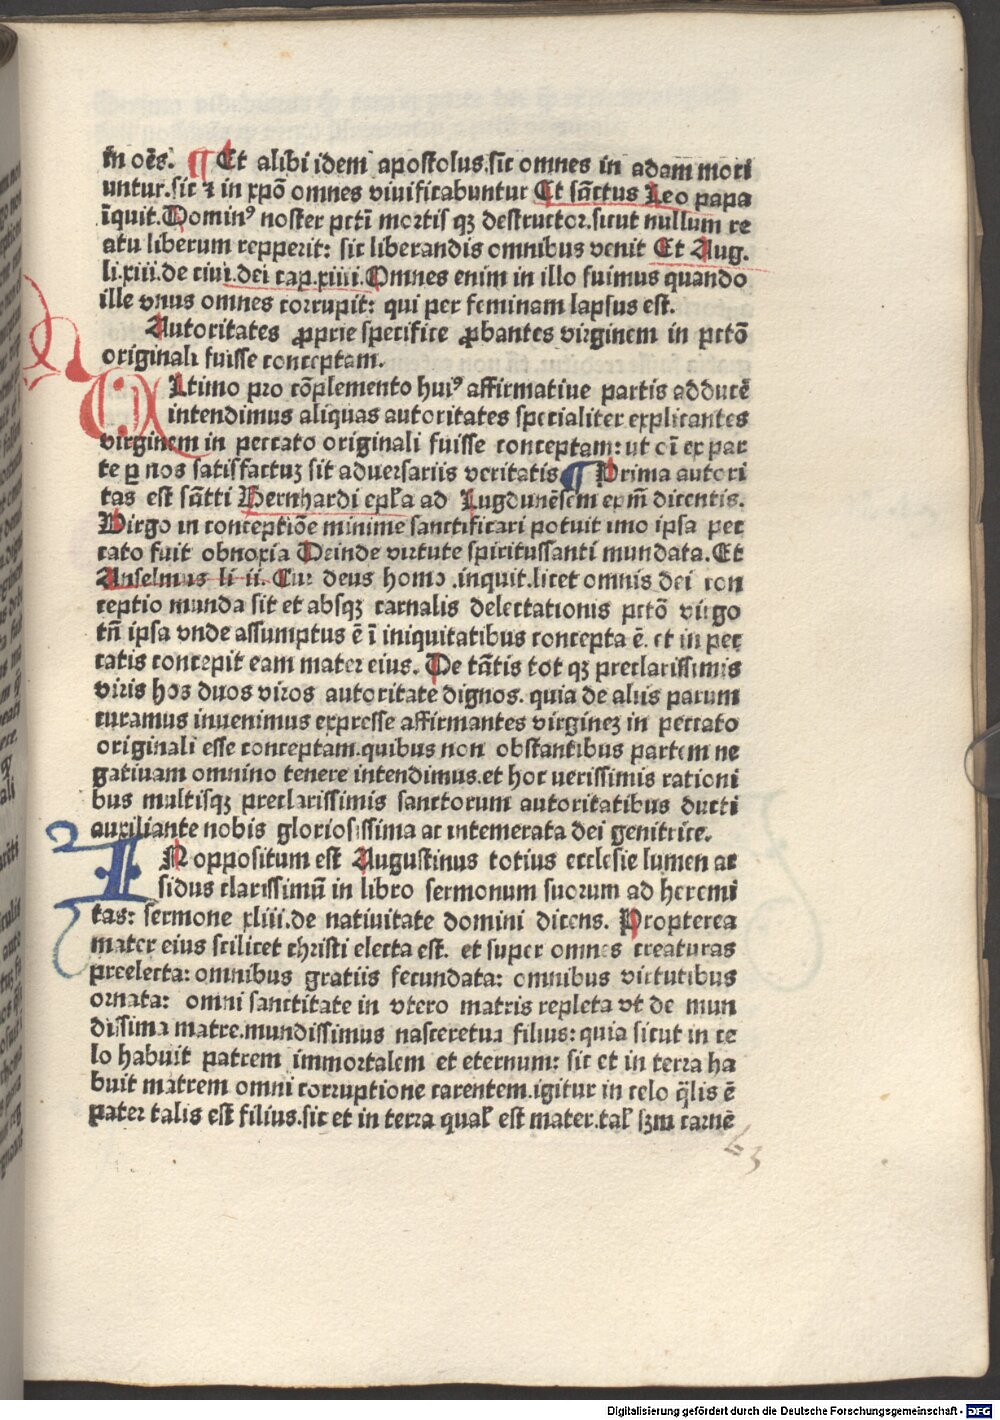 in oēs. ¶ Et alibi idem apostolus.sic omnes in adam mori
untur.sic ⁊ in xpō omnes viuificabuntur Et sāctus Leo papa
īquit.Domin⁹ noster pctī mortis qꝫ destructor.sicut nullum re
atu liberum repperit: sic liberandis omnibus venit Et Aug.
li.xiii.de ciui.dei cap.xiiii.Omnes enim in illo fuimus quando
ille vnus omnes corrupit: qui per feminam lapsus est.
Autoritates ꝓprie specifice ꝓbantes virginem in pctō
originali fuisse conceptam.
Ultimo pro cōplemento hui⁹ affirmatiue partis adducē
intendimus aliquas autoritates specialiter explicantes
virginem in peccato originali fuisse conceptam: ut oī ex par
te ꝑ nos satisfactuꝫ sit aduersariis veritatis ¶ Prima autori
tas est sācti Bernhardi epl'a ad Lugdunēsem epm̄ dicentis.
Virgo in conceptiōe minime sanctificari potuit imo ipsa pec
cato fuit obnoxia Deinde virtute spiritussanti mundata.Et
Anselmus li ii. Cur deus homo .inquit.licet omnis dei con
ceptio munda sit et absqꝫ carnalis delectationis pctō virgo
tn̄ ipsa vnde assumptus ē ī iniquitatibus concepta ē. et in pec
catis concepit eam mater eius. De tātis tot qꝫ preclarissimis
viris hos duos viros autoritate dignos. quia de aliis parum
curamus inuenimus expresse affirmantes virgineꝫ in peccato
originali esse conceptam.quibus non obstantibus partem ne
gatiuam omnino tenere intendimus.et hoc uerissimis rationi
bus multisqꝫ preclarissimis sanctorum autoritatibus ducti
auxiliante nobis gloriosissima ac intemerata dei genitrice.
IN oppositum est Augustinus totius ecclesie lumen ac
sidus clarissimū in libro sermonum suorum ad heremi
tas: sermone xliii.de natiuitate domini dicens. Propterea
mater eius scilicet christi electa est. et super omnes creaturas
preelecta: omnibus gratiis fecundata: omnibus virtutibus
ornata: omni sanctitate in vtero matris repleta vt de mun
dissima matre.mundissimus nasceretur filius: quia sicut in ce
lo habuit patrem immortalem et eternum: sic et in terra ha
buit matrem omni corruptione carentem.igitur in celo q̄lis ē
pater talis est filius.sic et in terra qual' est mater.tal' sꝫm carnē
63
Digitalisierung gefördert durch die Deutsche Forschungsgemeinschaft - DFG